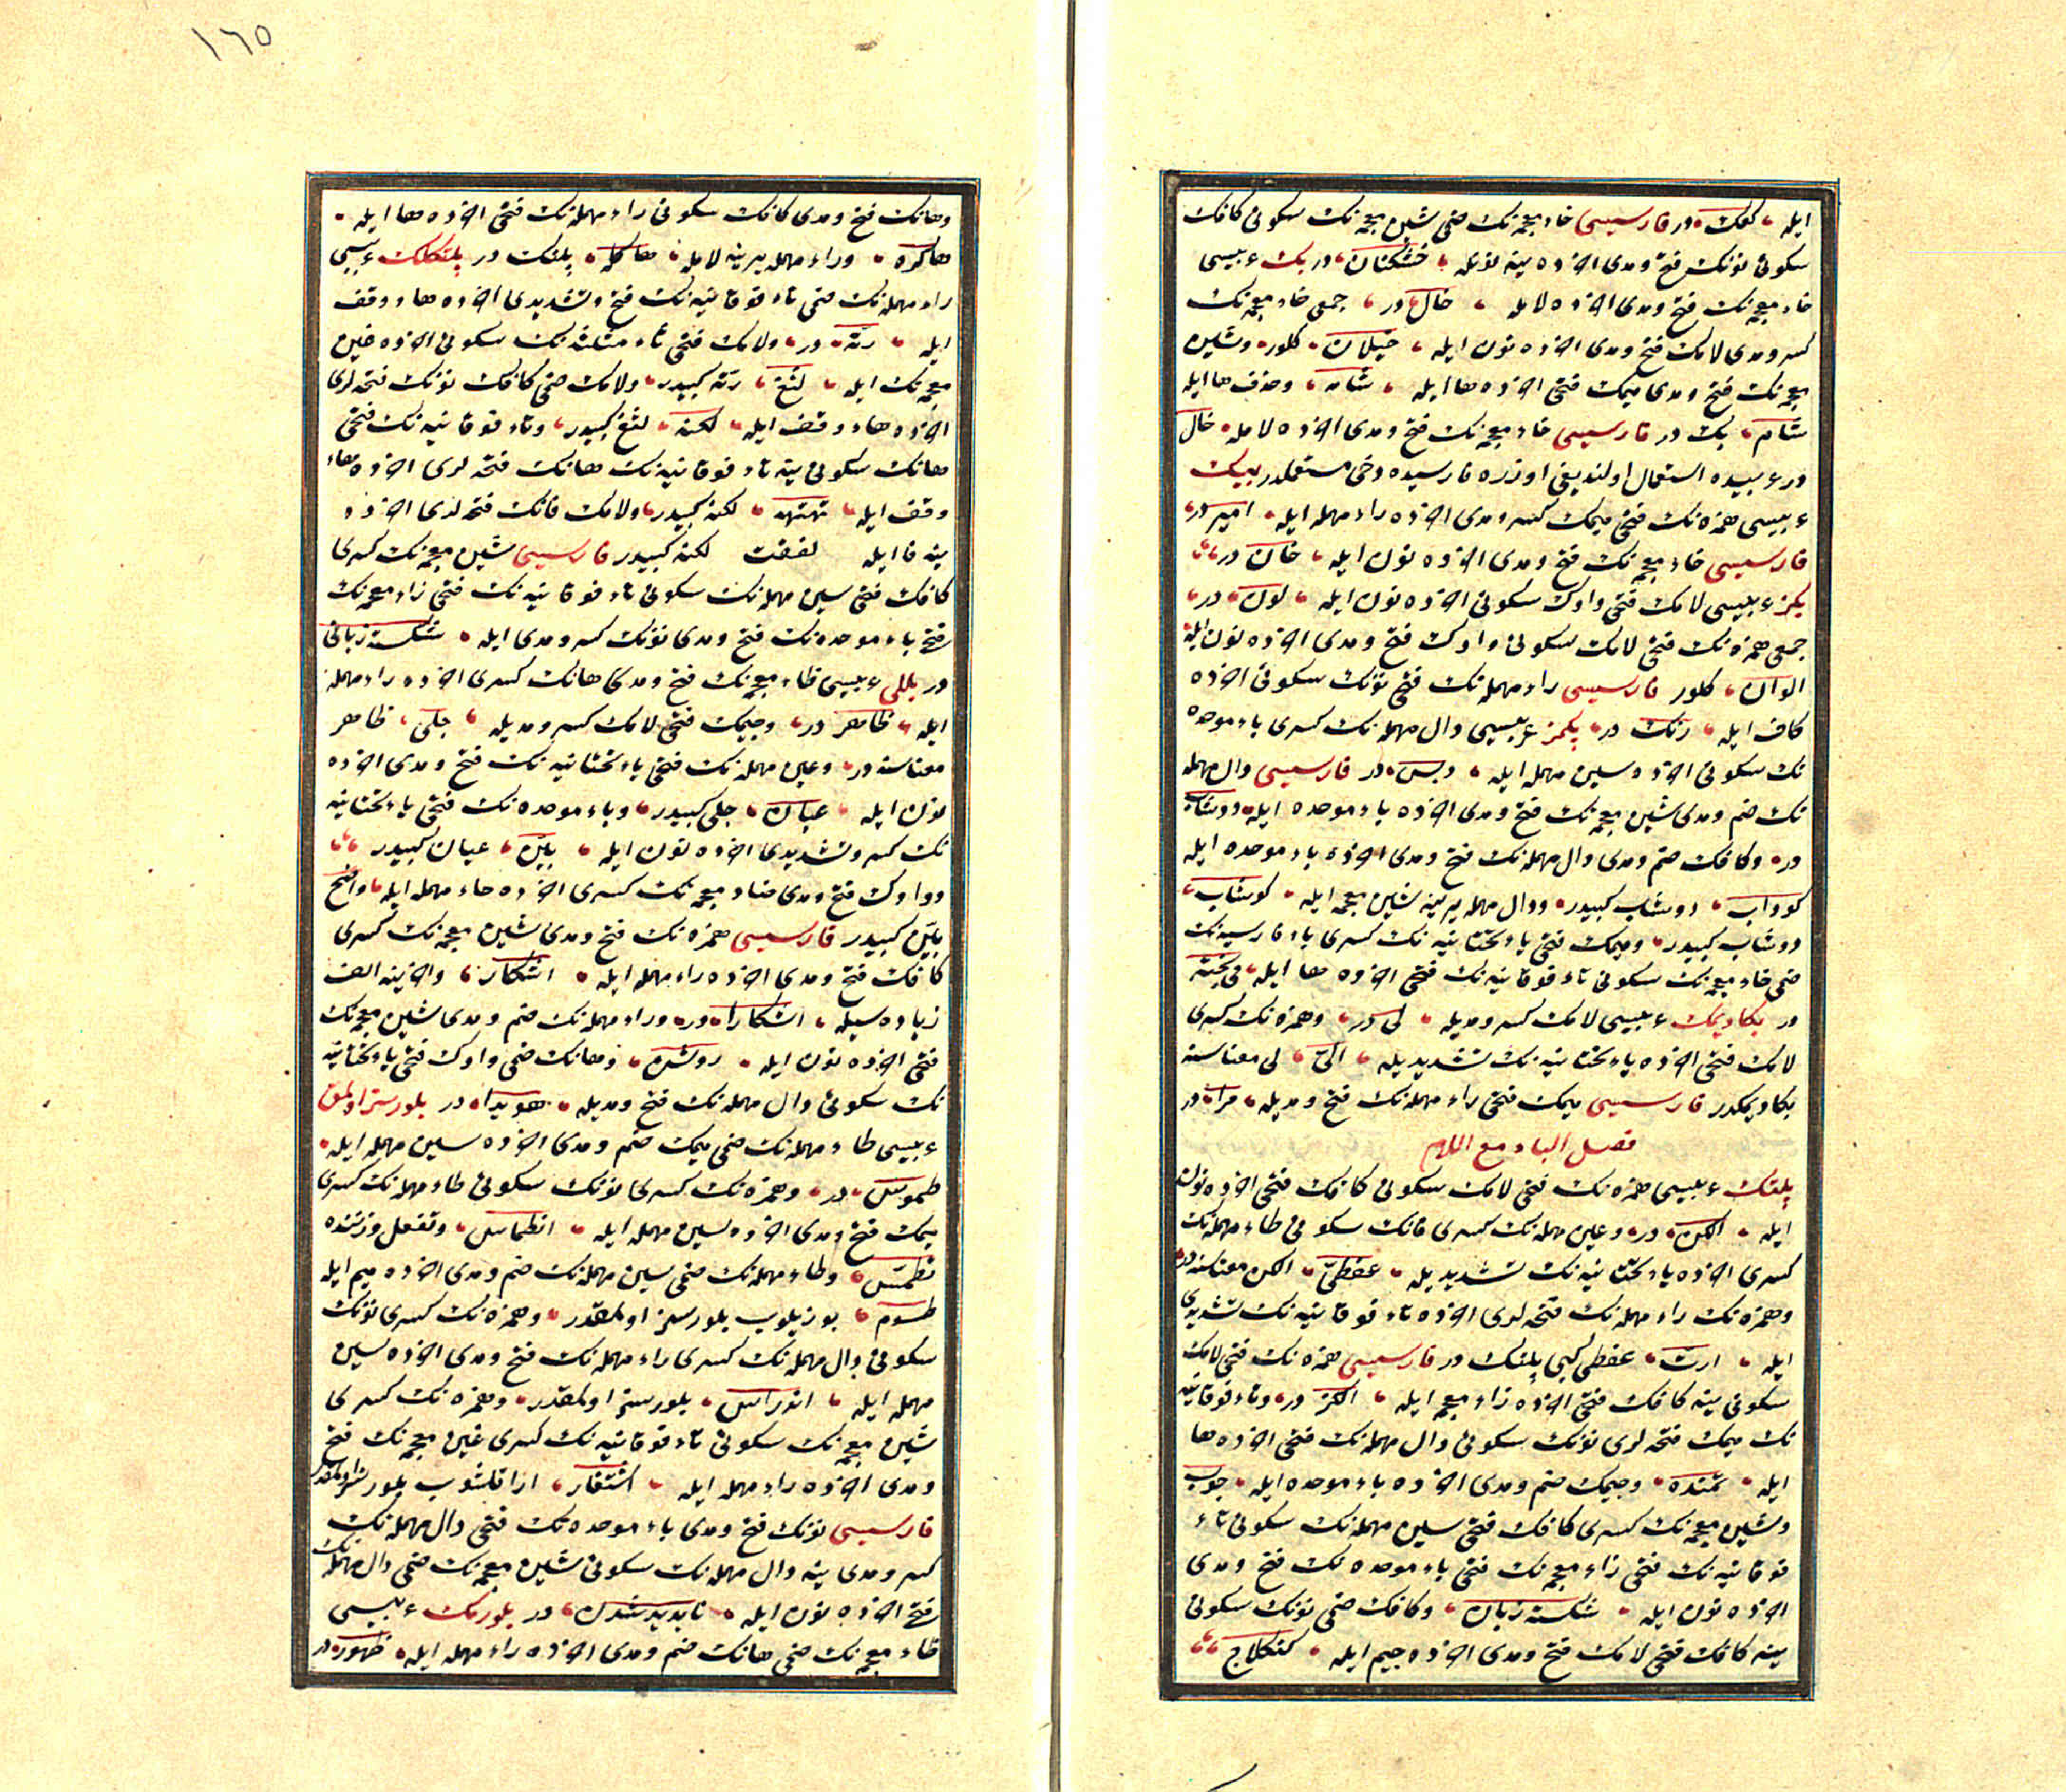 ایله ، کعک در فارسیسی خاء معجمه نك ضمی شین معجمه نك سکونی کافك
سکونی نونك فتح و مدی اخرده ینه نونله ، خشکنان در بك عربیسی
خاء معجمه نك فتح و مدی اخرده لامله ، خال در ، جمعی خاء معجمه نك
کسر و مدی لامك فتح و مدی اخرده نون ایله ، خیلان کلور وشین
معجمه نك فتح و مدی میمك فتحی اخرده ها ایله ، شامه ، وحذف ها ایله
شام بك در فارسیسی خاء معجمه نك فتح و مدی اخرده لامله خال
در عربیده استعمال اولندیغی اوزره فارسیده دخی مستعملدر بیك
عربیسی همزه نك فتحی میمك کسر و مدی اخرده راء مهمله ایله امیر در
فارسیسی خاء معجمه نك فتح و مدی اخرده نون ایله ، خان در
بکز عربیسی لامك فتحی واوك سکونی اخرده نون ایله ، لون در
جمعی همزه نك فتحی لامك سکونی واوك فتح و مدی اخرده نون ایله
الوان کلور فارسیسی راء مهمله نك فتحی نونك سکونی اخرده
کاف ایله ، رنك در پکمز عربیسی دال مهمله نك کسری باء موحده
نك سکونی اخرده سین مهمله ایله ، دبس در فارسیسی دال مهمله
نك ضم و مدی شین معجمه نك فتح و مدی اخرده باء موحده ایله دوشاب
در وکافك ضم و مدی دال مهمله نك فتح و مدی اخرده باء موحده ایله
کوداب دوشاب کبیدر ودال مهمله یرینه شین معجمه ایله ، کوشاب
دوشاب کبیدر ومیمك فتحی یاء تحتانیه نك کسری باء فارسیه نك
ضمی خاء معجمه نك سکونی تاء فوقانیه نك فتحی اخرده ها ایله می پخته
در بکا دیمك عربیسی لامك کسر و مدیله ، لی در وهمزه نك کسری
لامك فتحی اخرده یاء تحتانیه نك تشدیدیله ، الیّ لی معناسنه
بکا دیمکدر فارسیسی میمك فتحی راء مهمله نك فتح و مدیله مرا در
فصل الباء مع اللام
پلتك عربیسی همزه نك فتحی لامك سکونی کافك فتحی اخرده نون
ایله ، الکن در وعین مهمله نك کسری فانك سکونی طاء مهمله نك
کسری اخرده یاء تحتانیه نك تشدیدیله ، عفطیّ الکن معناسنه در
وهمزه نك راء مهمله نك فتحه لری اخرده تاء فوقانیه نك تشدیدی
ایله ، ارتّ عفطی کبی پلتك در فارسیسی همزه نك فتحی لامك
سکونی ینه کافك فتحی اخرده زاء معجمه ایله ، الکز در وتاء فوقانیه
نك میمك فتحه لری نونك سکونی دال مهمله نك فتحی اخرده ها
ایله ، تمنده وجیمك ضم و مدی اخرده باء موحده ایله ، جوب
وشین معجمه نك کسری کافك فتحی سین مهمله نك سکونی تاء
فوقانیه نك فتحی زاء معجمه نك فتحی باء موحده نك فتح و مدی
اخرده نون ایله ، شکسته زبان وکافك ضمی نونك سکونی
ینه کافك فتحی لامك فتح و مدی اخرده جیم ایله ، کنکلاج
١٦٥
وهانك فتح و مدی کافك سکونی راء مهمله نك فتحی اخرده ها ایله
هاکره وراء مهمله یرینه لامله ، هاکله پلتك در پلتکلك عربیسی
راء مهمله نك ضمی تاء فوقانیه نك فتح و تشدیدی اخرده هاء وقف
ایله ، رتّه در ولامك فتحی ثاء مثلثه نك سکونی اخرده غین
معجمه نك ایله ، لثغ رتّه کبیدر ولامك ضمی کافك نونك فتحه لری
اخرده هاء وقف ایله ، لکنه لثغ کبیدر وتاء فوقانیه نك فتحی
هانك سکونی ینه تاء فوقانیه نك هانك فتحه لری اخرده هاء
وقف ایله ، تهتهه لکنه کبیدر ولامك فانك فتحه لری اخرده
ینه فا ایله لففت لکنه کبیدر فارسیسی شین معجمه نك کسری
کافك فتحی سین مهمله نك سکونی تاء فوقانیه نك فتحی زاء معجمه نك
فتح باء موحده نك فتح و مدی نونك کسر و مدی ایله شکسته زبانی
در بللی عربیسی ظاء معجمه نك فتح و مدی هانك کسری اخرده راء مهمله
ایله ، ظاهر در وجیمك فتحی لامك کسر و مدیله ، جلی ظاهر
معناسنه در وعین مهمله نك فتحی یاء تحتانیه نك فتح و مدی اخرده
نون ایله ، عیان جلی کبیدر وباء موحده نك فتحی یاء تحتانیه
نك کسر و تشدیدی اخرده نون ایله ، بیّن عیان کبیدر
وواوك فتح و مدی ضاد معجمه نك کسری اخرده حاء مهمله ایله واضح
بیّن کبیدر فارسیسی همزه نك فتح و مدی شین معجمه نك کسری
کافك فتح و مدی اخرده راء مهمله ایله ، اشکار واخرینه الف
زیاده سیله ، اشکارا در وراء مهمله نك ضم و مدی شین معجمه نك
فتحی اخرده نون ایله ، روشن وهانك ضمی واوك فتحی یاء تحتانیه
نك سکونی دال مهمله نك فتح و مدیله ، هویدا در بلورسز اولمق
عربیسی طاء مهمله نك ضمی میمك ضم و مدی اخرده سین مهمله ایله
طموس در وهمزه نك کسری نونك سکونی طاء مهمله نك کسری
میمك فتح و مدی اخرده سین مهمله ایله ، انطماس وتفعل وزننده
تطمّس وطاء مهمله نك ضمی سین مهمله نك ضم و مدی اخرده میم ایله
طسوم بوزیلوب بلورسز اولمقدر وهمزه نك کسری نونك
سکونی دال مهمله نك کسری راء مهمله نك فتح و مدی اخرده سین
مهمله ایله ، اندراس بلورسز اولمقدر وهمزه نك کسری
شین معجمه نك سکونی تاء فوقانیه نك کسری غین معجمه نك فتح
و مدی اخرده راء مهمله ایله ، اشتغار ایراقلشوب بلورسز اولمقدر
فارسیسی نونك فتح و مدی باء موحده نك فتحی دال مهمله نك
کسر و مدی ینه دال مهمله نك سکونی شین معجمه نك ضمی دال مهمله نك
فتح اخرده نون ایله ، نابدید شدن در بلورمك عربیسی
ظاء معجمه نك ضمی هانك ضم و مدی اخرده راء مهمله ایله ظهور در